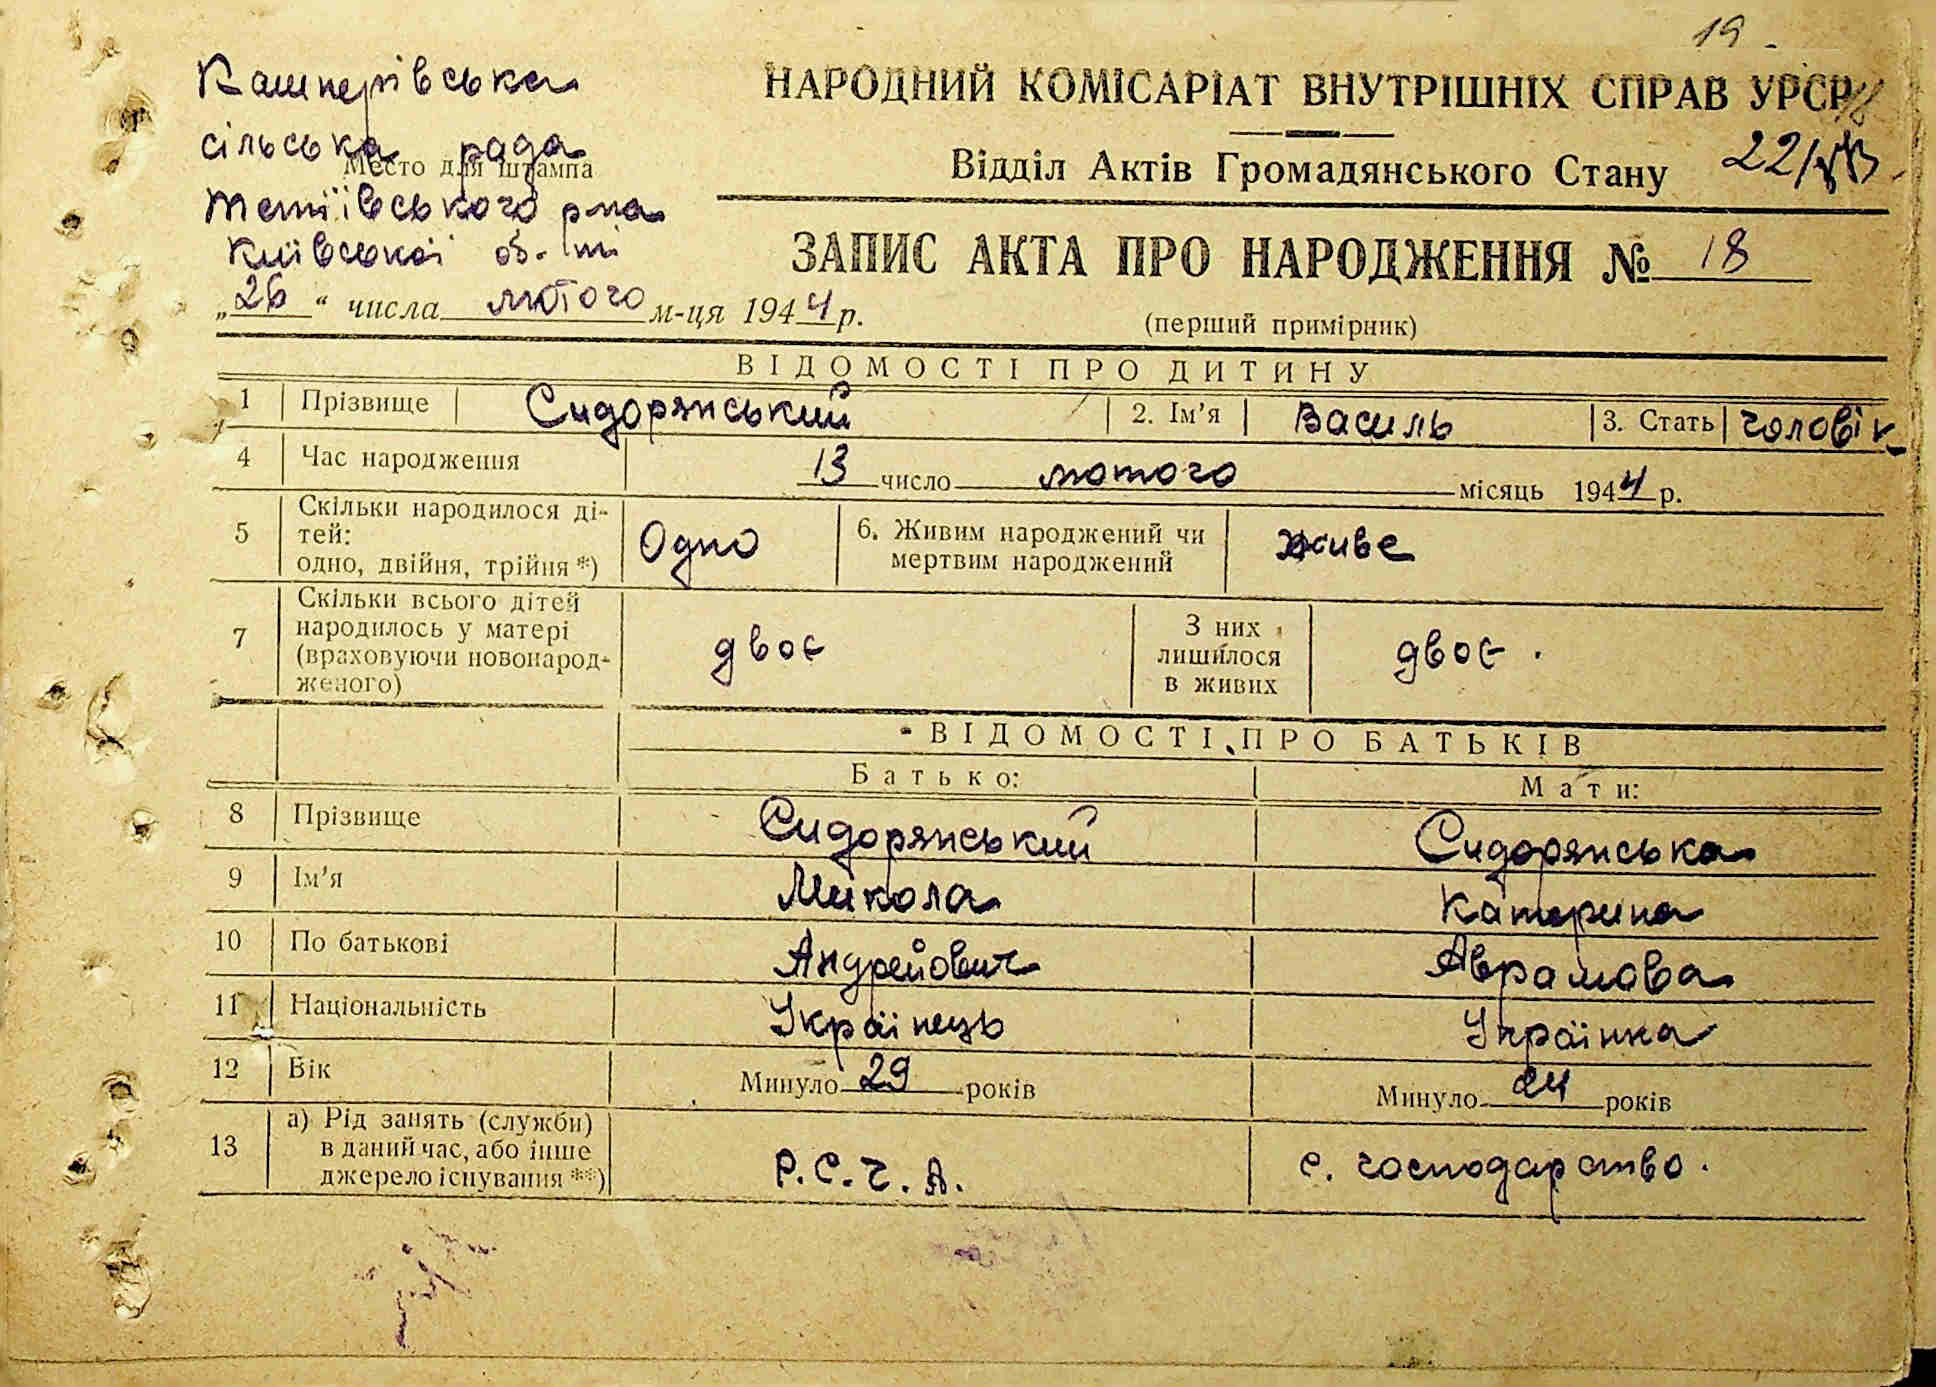 19.
Кашперівська
сільська рада
Место для штампа
Тетіївського р-на
Київської об-ті
"26" числа лютого м-ця 1944 р.
НАРОДНИЙ КОМІСАРІАТ ВНУТРІШНІХ СПРАВ УРСР
Відділ Актів Громадянського Стану
ЗАПИС АКТА ПРО НАРОДЖЕННЯ № 18
(перший примірник)
ВІДОМОСТІ ПРО ДИТИНУ
1 Прізвище Сидорянський 2. Ім'я Василь 3. Стать чоловік
4 Час народження 13 число лютого місяць 1944 р.
5 Скільки народилося ді-
тей:
одно, двійня, трійня *) Одно 6. Живим народжений чи
мертвим народжений живе
7 Скільки всього дітей
народилось у матері
(враховуючи новонарод-
женого) двоє З них
лишилося
в живих двоє.
ВІДОМОСТІ ПРО БАТЬКІВ
Батько: Мати:
8 Прізвище Сидорянський Сидорянська
9 Ім'я Микола Катерина
10 По батькові Андрейович Аврамова
11 Національність Українець Українка
12 Вік Минуло 29 років Минуло 24 років
13 а) Рід занять (служби)
в даний час, або інше
джерело існування **) Р.С.Ч.А. с. господарство.